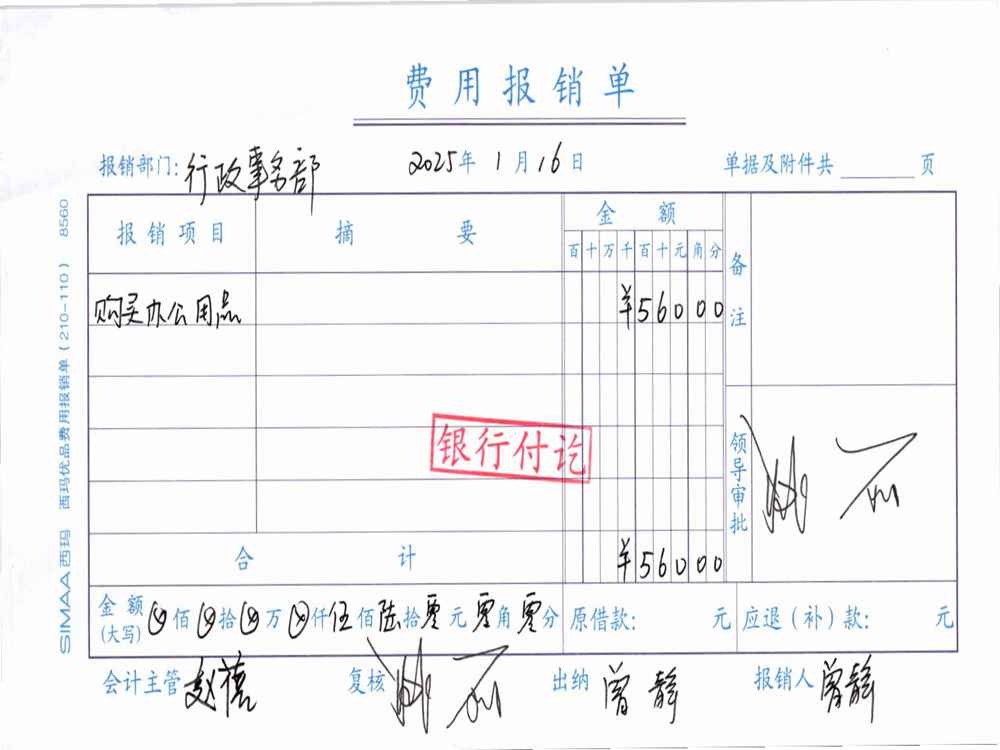 费用报销单
报销部门: 行政事务部 2025年 1月16日 单据及附件共 页
报销项目 摘要 金额 备注
百十万千百十元角分
购买办公用品 ¥56000
银行付讫
领导审批
合计 ¥56000
金额(大写) ⊗佰⊗拾⊗万⊗仟伍佰陆拾零元零角零分 原借款: 元 应退(补)款: 元
会计主管 赵蓓 复核 出纳 曾静 报销人 曾静
SIMAA西玛 西玛优品费用报销单(210-110) 8560